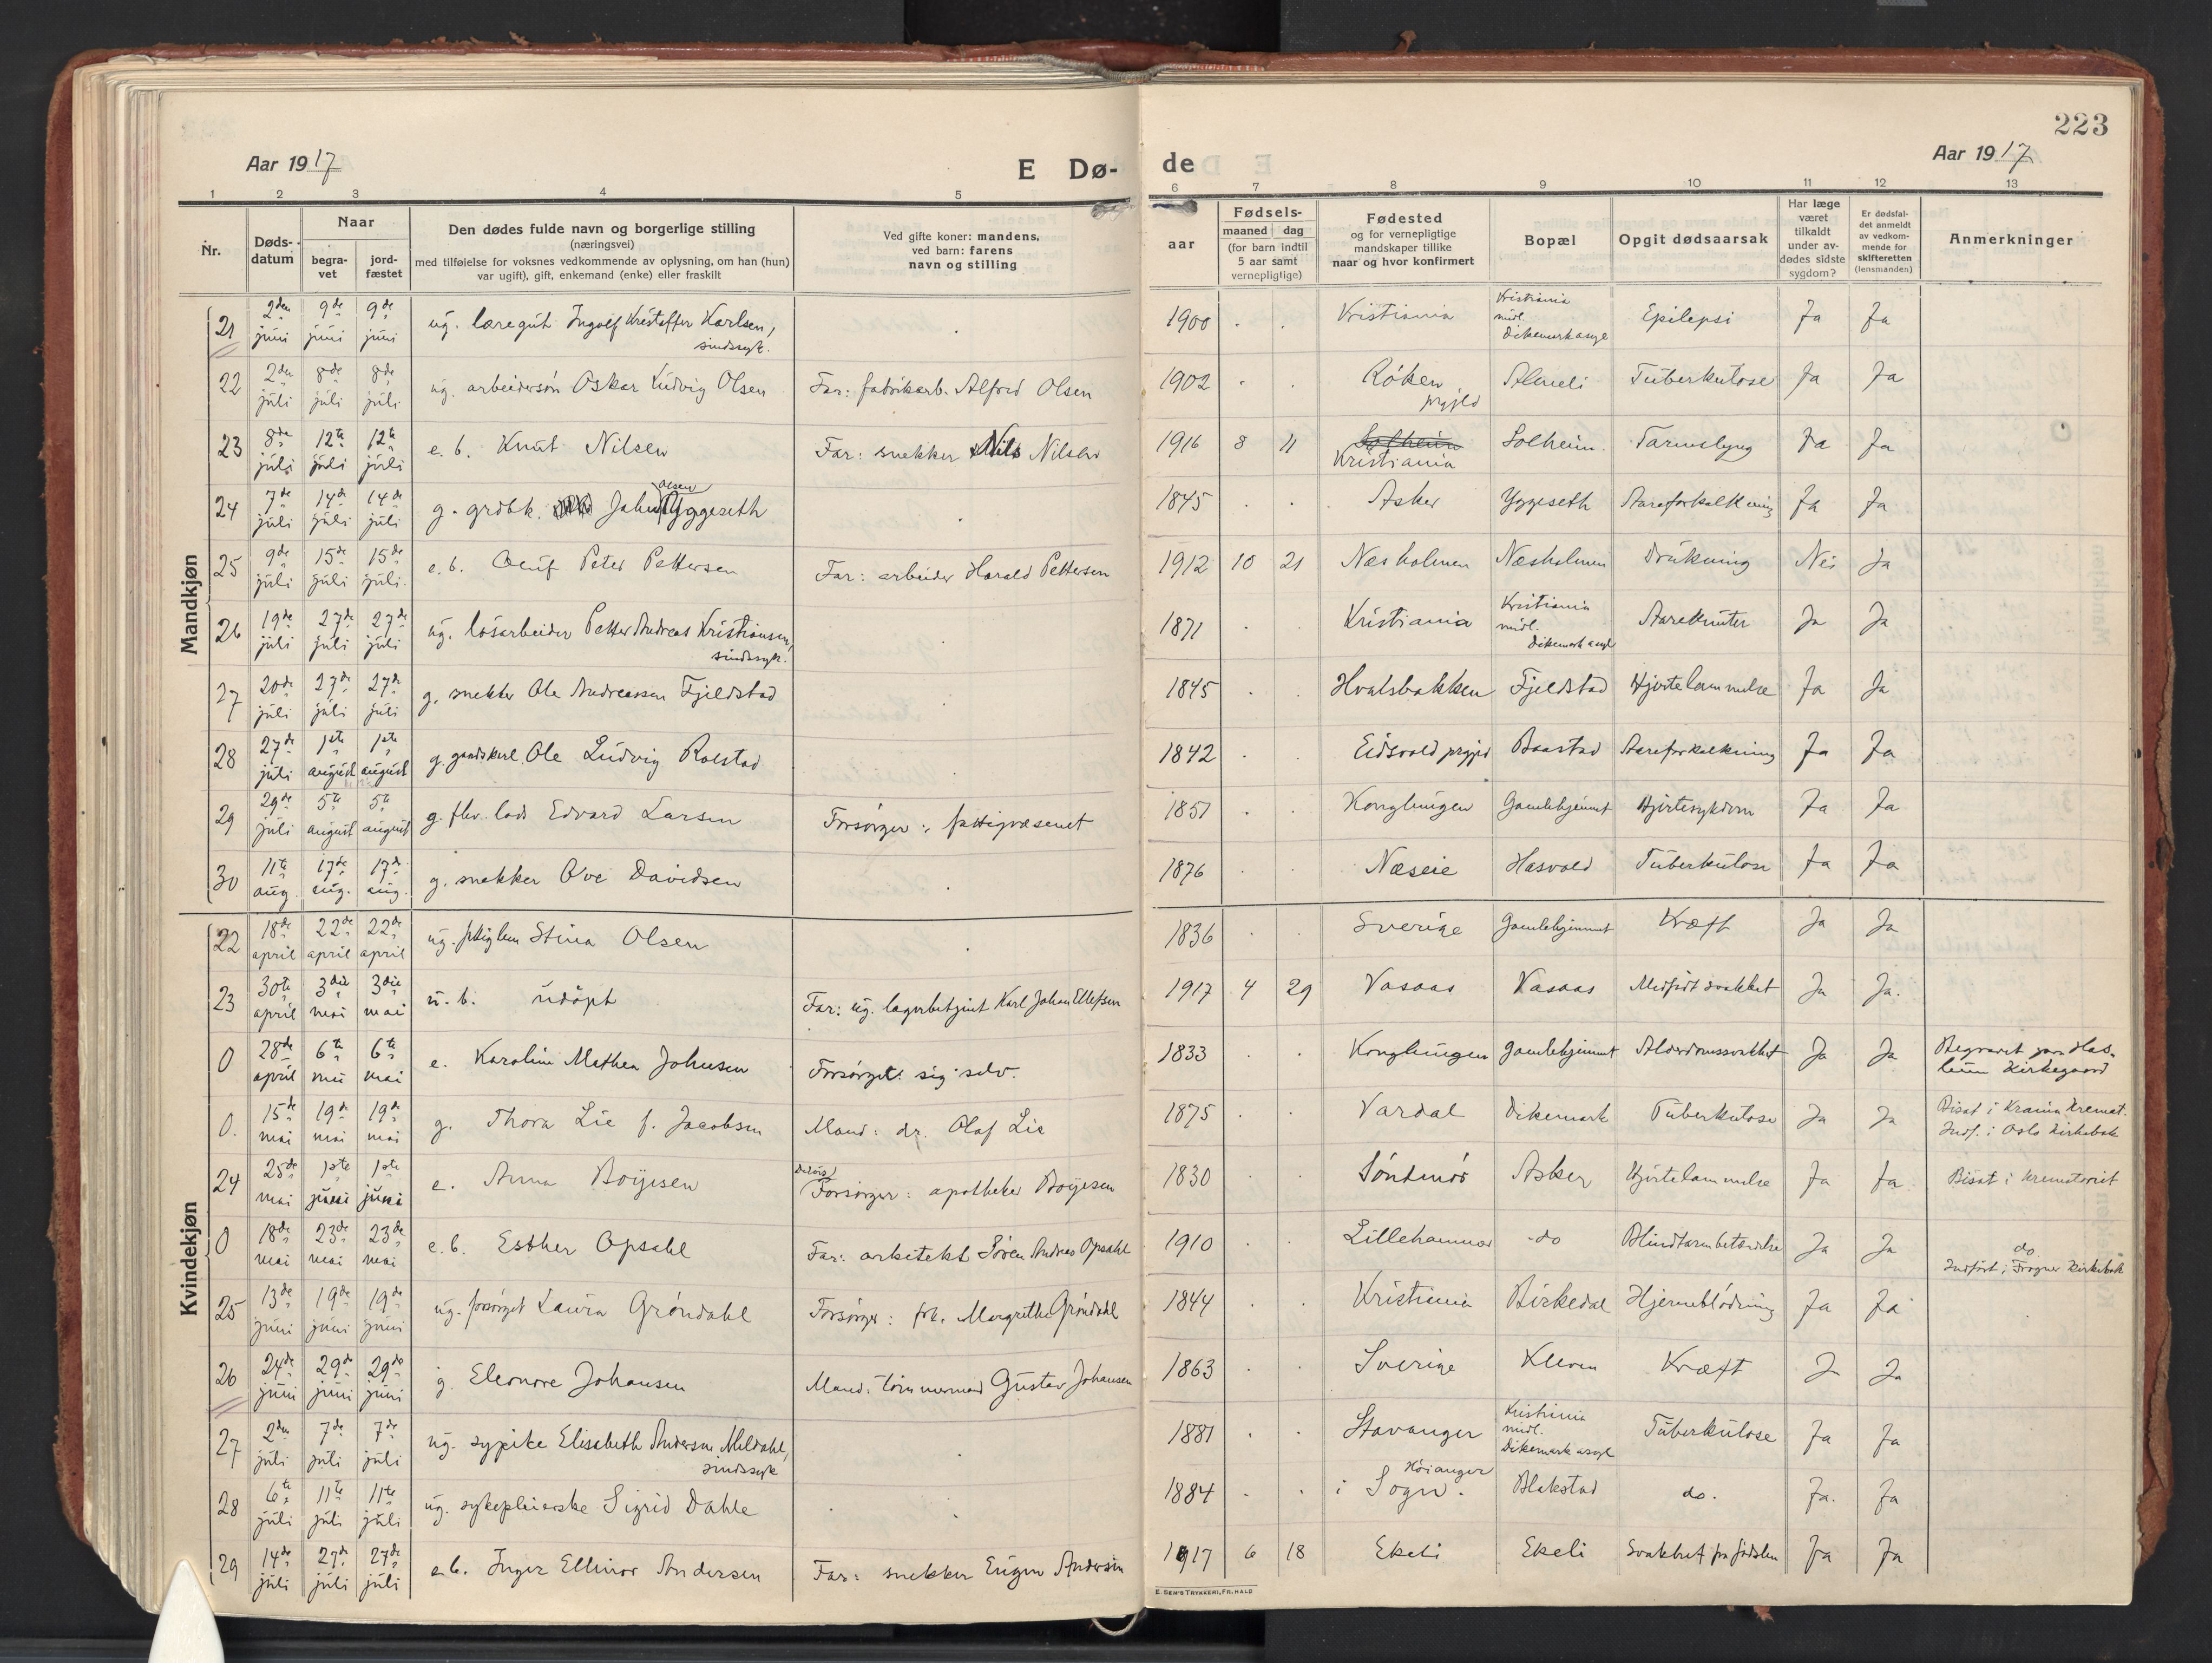 223
Aar 1917
E Dø-
de
Aar 1917
1 2 3 4 5 6 7 8 9 10 11 12 13
Nr.
Døds-
datum
Naar
begra-
vet
jord-
fæstet
Den dødes fulde navn og borgerlige stilling
(næringsvei)
med tilføielse for voksnes vedkommende av oplysning, om han (hun)
var ugift), gift, enkemand (enke) eller fraskilt
Ved gifte koner: mandens,
ved barn: farens
navn og stilling
aar
Fødsels-
maaned dag
(for barn indtil
5 aar samt
vernepligtige)
Fødested
og for vernepligtige
mandskaper tillike
naar og hvor konfirmert
Bopæl
Opgit dødsaarsak
Har læge
været
tilkaldt
under av-
dødes sidste
sygdom?
Er dødsfal-
det anmeldt
av vedkom-
mende for
skifteretten
(lensmanden)
Anmerkninger
Mandkjøn
21 2den juni 9de juni 9de juni ug. læregut Ingolf Kristoffer Karlsen, sindssyk. 1900 Kristiania Kristiania midl. Dikemark asyl Epilepsi Ja Ja
22 2den juli 8de juli 8de juli ug. arbeidersøn Oskar Ludvig Olsen Far: fabrikarb. Alfred Olsen 1902 Røken prgjld Tuberkulose Ja Ja
23 8de juli 12te juli 12te juli e. b. Knut Nilsen Far: snekker Nils Nilsen 1916 8 11 Solheim Kristiania Solheim Tarmslyng Ja Ja
24 7de juli 14de juli 14de juli g. grdbk. Johan Olsen Yggeseth 1845 Asker Yggeseth Aareforkalkning Ja Ja
25 9de juli 15de juli 15de juli. e. b. Oluf Peter Pettersen Far: arbeider Harald Pettersen 1912 10 21 Næsholmen Næsholmen Drukning Nei Ja
26 19de juli 27de juli 27de juli ug. løsarbeider Petter Andreas Kristiansen, sindssyk. 1871 Kristiania Kristiania midl. Dikemark asyl Aareknuter Ja Ja
27 20de juli 27de juli 27de juli g. snekker Ole Andreassen Fjeldstad 1845 Hvalsbakken Fjeldstad Hjertelammelse Ja Ja
28 27de juli 1ste august 1ste august g. gaardskarl Ole Ludvig Rolstad 1842 Eidsvold prgjld Baastad Aareforkalkning Ja Ja
29 29de juli 5te august 5te august g. flv. lods Edvard Larsen Forsørger: fattigvæsenet 1851 Konglungen Gamlehjemmet Hjertesykdom Ja Ja
30 11te aug. 17de aug. 17de aug. g. snekker Ove Davidsen 1876 Næseie Hasvold Tuberkulose Ja Ja
Kvindekjøn
22 18de april 22de april 22de april ug. Stina Olsen 1836 Sverige Gamlehjemmet Kræft Ja Ja
23 30te april 3die mai 3die mai u. b. udøpt Far: ug. lagerbetjent Karl Johan Ellefsen 1917 4 29 Vasaas Vasaas Medfødt svakhet Ja Ja.
0 28de april 6te mai 6te mai e. Karoline Mathea Johnsen Forsørget sig selv. 1833 Konglungen Gamlehjemmet Alderdomssvakhet Ja Ja Begravet paa Has-
lum Kirkegaard
0. 15de mai 19de mai 19de mai g. Thora Lie f. Jacobsen Mand: dr. Olaf Lie 1875 Vardal Dikemark Tuberkulose Ja Ja Bisat i Krania Kremat.
Indf. i Oslo kirkebok
24 25de mai 1ste juni 1ste juni e. Anna Boyesen Forsørger: apotheker Boyesen 1830 Søndmør Asker Hjertelammelse Ja Ja Bisat i krematoriet
0 18de mai 23de mai 23de mai e. b. Esther Opsahl Far: arkitekt Søren Andreas Opsahl 1910 Lillehammer do Blindtarmbetændelse Ja Ja do
Indført i Frogner Kirkebok
25 13de juni 19de juni 19de juni ug. forsørget Laura Grøndahl Forsørger: frk. Margrethe Grøndahl 1844 Kristiania Birkedal Hjerneblødning Ja Ja
26 24de juni 29de juni 29de juni g. Eleonore Johansen Mand: tømmermand Gustav Johansen 1863 Sverige Kræft Ja Ja
27 2den juli 7de juli 7de juli ug. sypike Elisabeth Andersen Meldahl, sindssyk 1881 Stavanger Kristiania midl. Dikemark asyl Tuberkulose Ja Ja
28 6te juli 11te juli 11te juli ug. sykepleierske Sigrid Dahle 1884 Høianger i Sogn. Blakstad do. Ja. Ja
29 14de juli 27de juli 27de juli e. b. Inger Ellinor Andersen Far: snekker Eugen Andersen 1917 6 18 Ekeli Ekeli Svakhet fra fødslen Ja Ja
E. SEM'S TRYKKERI, FR.HALD